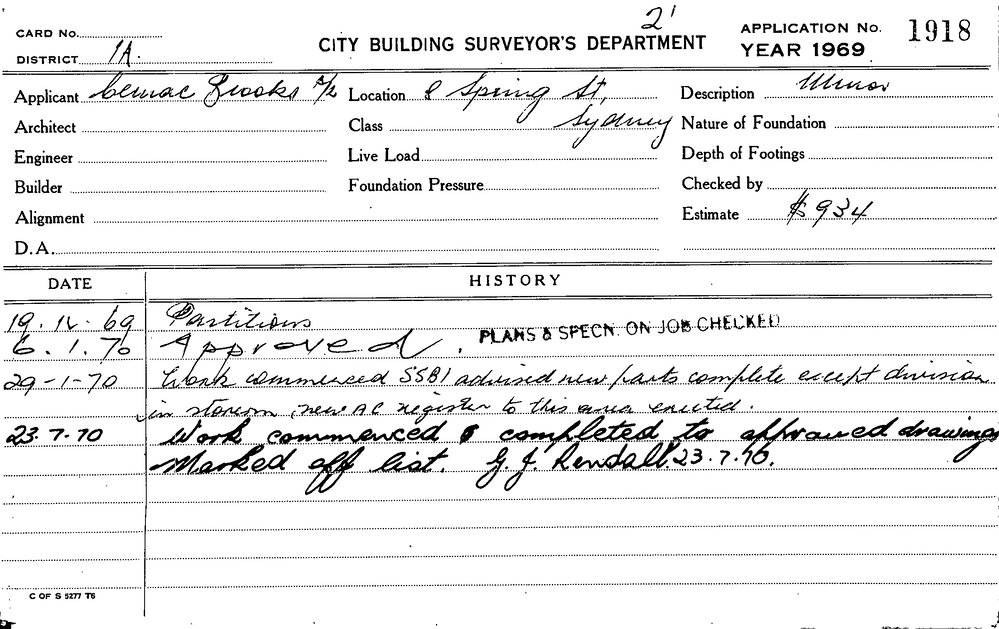 2'
CARD No. CITY BUILDING SURVEYOR'S DEPARTMENT APPLICATION No. 1918
DISTRICT 1A. YEAR 1969
Applicant Cemac Brooks P/L Location 8 Spring St, Description Minor
Architect Class Sydney Nature of Foundation
Engineer Live Load Depth of Footings
Builder Foundation Pressure Checked by
Alignment Estimate $934
D.A.
DATE HISTORY
19.12.69 Partitions
6.1.70 Approved. PLANS & SPECN ON JOB CHECKED
29-1-70 Work commenced SSB1 advised new parts complete except division
in storerm, new AC register to this area erected.
23.7.70 Work commenced & completed to approved drawings
Marked off list. G.J. Rendall. 23.7.70.
C OF S 5277 T6